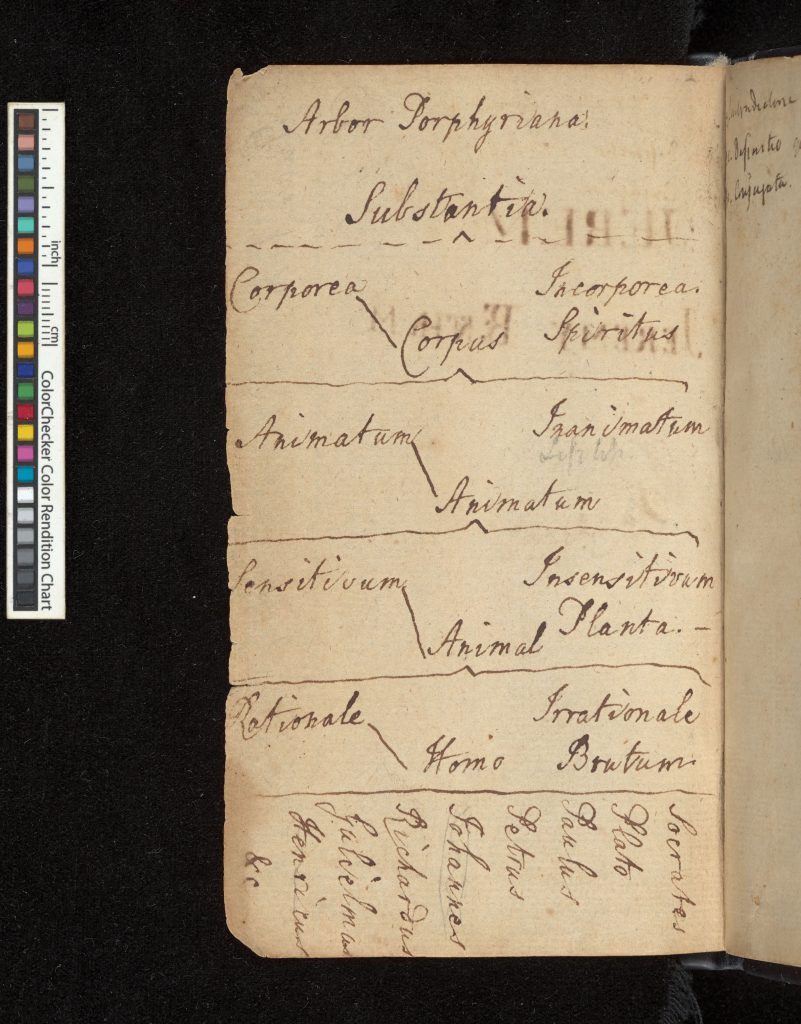 Arbor Porphyriana.
Substantia.
Corporea
Incorporea.
Corpus
Spiritus
Animatum
Inanimatum
Animatum
Sensitivum
Insensitivum
Animal
Planta. –
Rationale
Irrationale
Homo
Brutum.
Socrates
Plato
Paulus
Petrus
Johannes
Richardus
Gulielmus
Henricus
&c
Definitio
Conjugata.
inch
cm
ColorChecker Color Rendition Chart